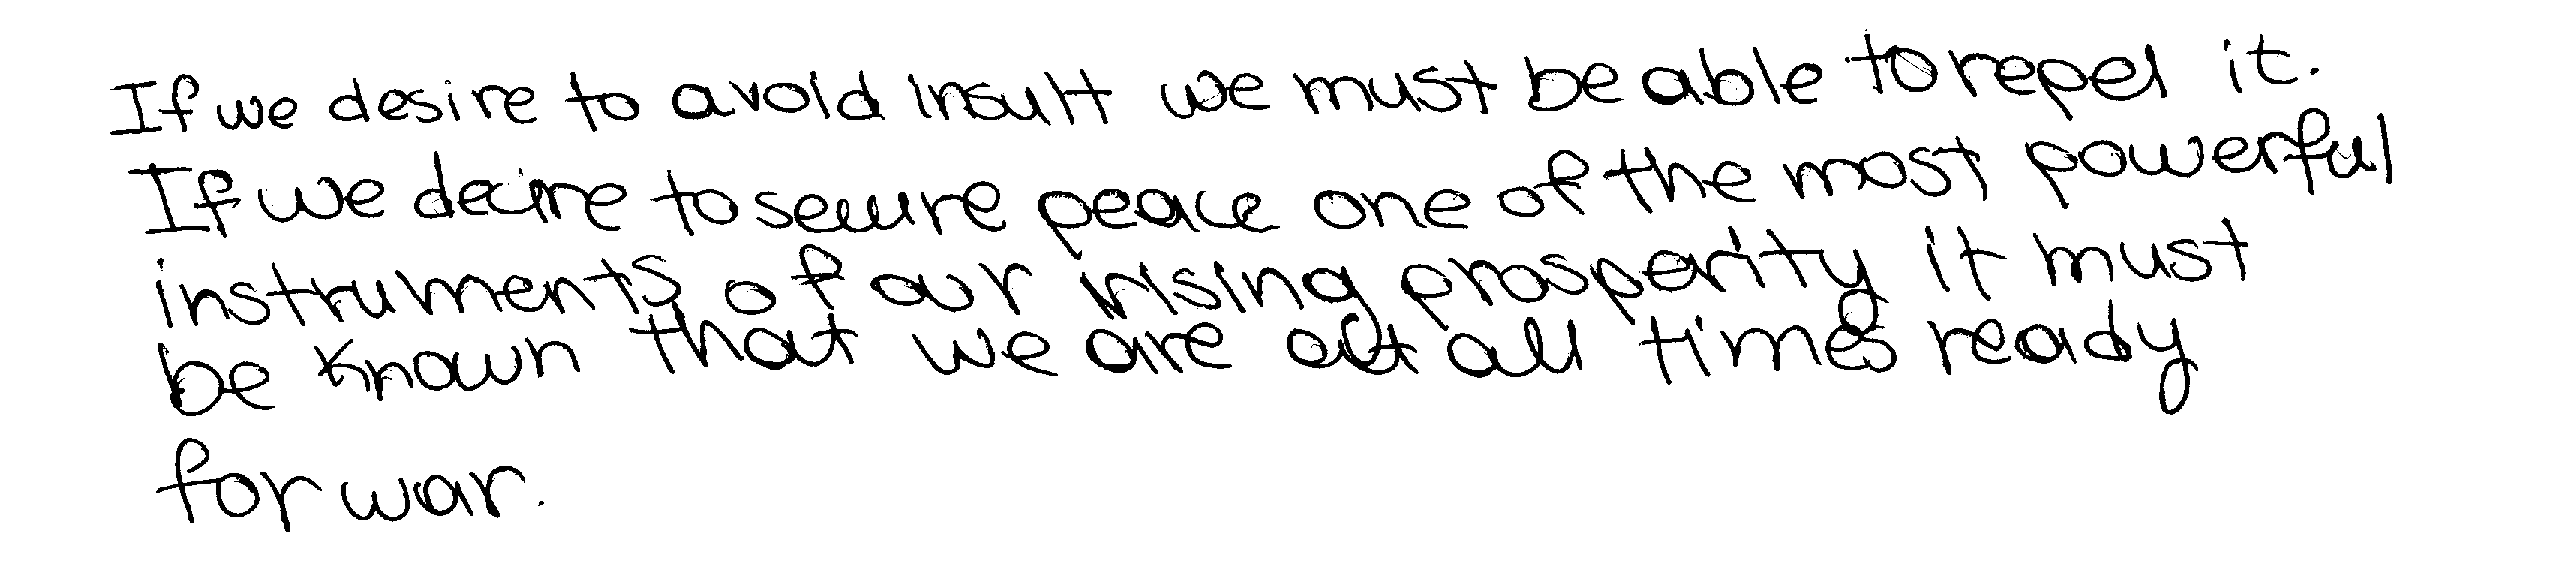 If we desire to avoid insult we must be able to repel it.
If we decire to secure peace one of the most powerful
instruments of our rising prosperity it must
be known that we are at all times ready
for war.